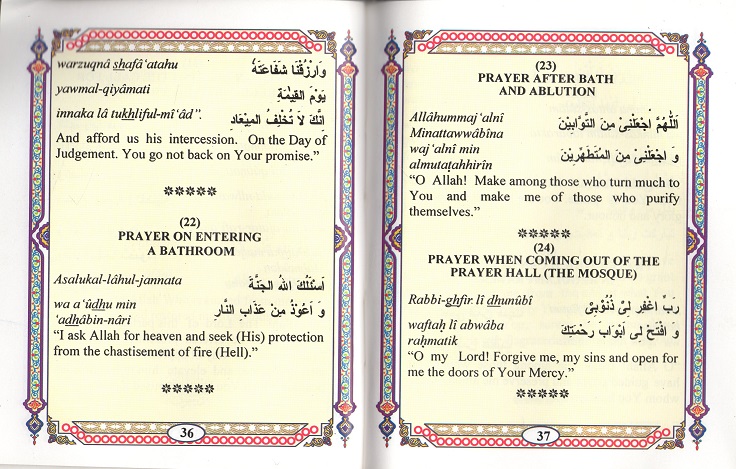 warzuqnâ shafâ‘atahu
وَارْزُقْنَا شَفَاعَتَهُ
yawmal-qiyâmati
يَوْمَ الْقِيٰمَةِ
innaka lâ tukhliful-mî‘âd”.
اِنَّكَ لَا تُخْلِفُ الْمِيْعَادِ
And afford us his intercession. On the Day of
Judgement. You go not back on Your promise.”
(22)
PRAYER ON ENTERING
A BATHROOM
Asalukal-lâhul-jannata
اَسْئَلُكَ اللهُ الْجَنَّةَ
wa a‘ûdhu min
‘adhâbin-nâri
وَ اَعُوْذُ مِنْ عَذَابِ النَّارِ
“I ask Allah for heaven and seek (His) protection
from the chastisement of fire (Hell).”
36
(23)
PRAYER AFTER BATH
AND ABLUTION
Allâhummaj‘alnî
Minattawwâbîna
اَللّٰهُمَّ اجْعَلْنِىْ مِنَ التَّوَّابِيْنَ
waj‘alnî min
almutaṭahhirîn
وَ اجْعَلْنِىْ مِنَ الْمُتَطَهِّرِيْنَ
“O Allah! Make among those who turn much to
You and make me of those who purify
themselves.”
(24)
PRAYER WHEN COMING OUT OF THE
PRAYER HALL (THE MOSQUE)
Rabbi-ghfir lî dhunûbî
رَبِّ اغْفِرْ لِىْ ذُنُوْبِىْ
waftaḥ lî abwâba
raḥmatik
وَ افْتَحْ لِى اَبْوَابَ رَحْمَتِكَ
“O my Lord! Forgive me, my sins and open for
me the doors of Your Mercy.”
37